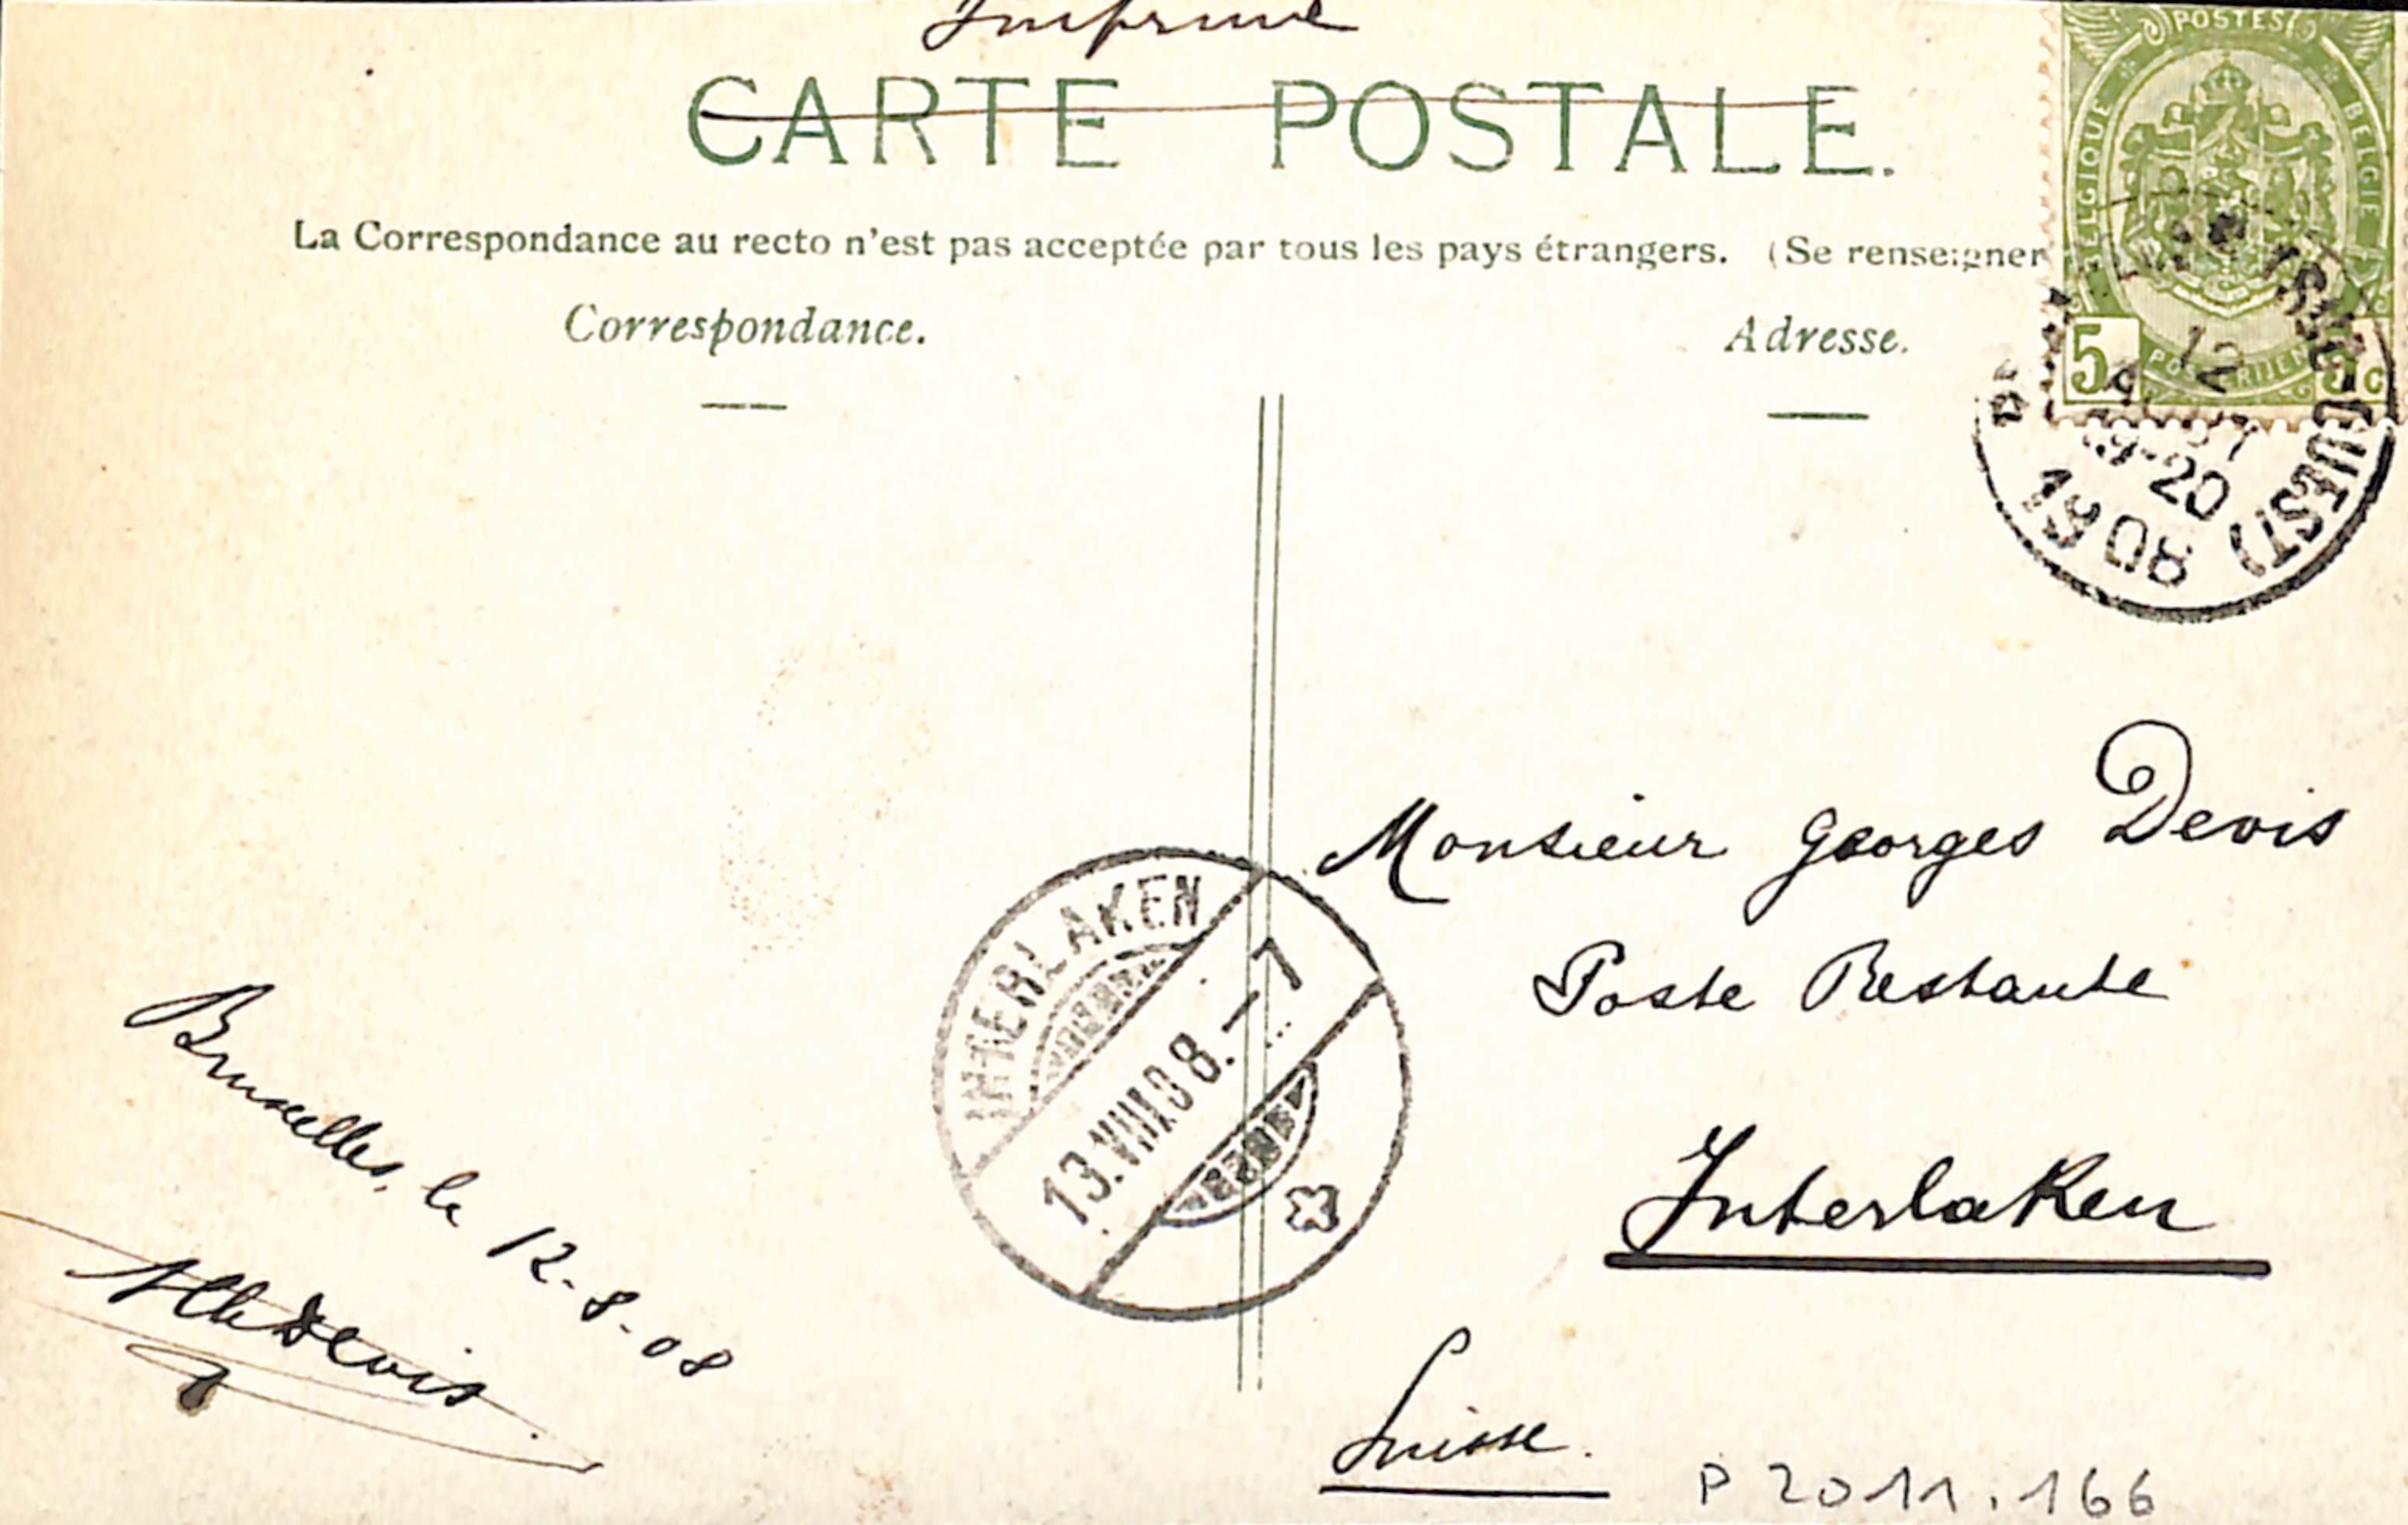 Imprimé
CARTE POSTALE.
La Correspondance au recto n'est pas acceptée par tous les pays étrangers. (Se renseigner
Correspondance.
Adresse.
POSTES
BELGIQUE
BELGIE
5
5 c
12
19-20
1908
OUEST)
Monsieur Georges Devis
Poste Restante
Interlaken
Suisse.
INTERLAKEN
13.VIII.08.-7
Bruxelles, le 12-8-08
Devis
P 2011.166